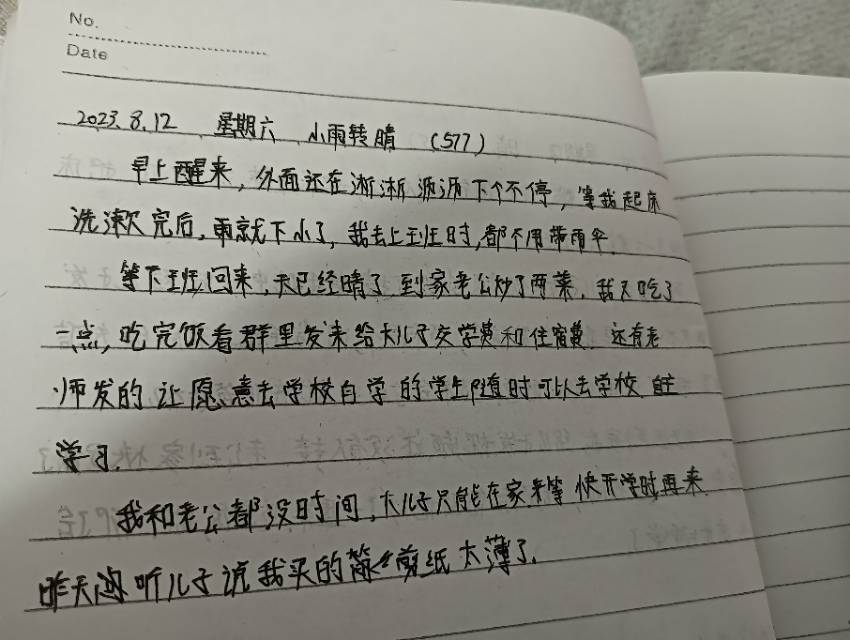 No.
Date
2023.8.12 星期六 小雨转晴 (577)
早上醒来,外面还在淅淅沥沥下个不停,等我起床
洗漱完后,雨就下小了,我去上班时,都不用带雨伞.
等下班回来,天已经晴了 到家老公炒了两菜.我又吃了
一点,吃完饭看群里发来给大儿子交学费和住宿费.还有老
师发的 让愿意去学校自学的学生随时可以去学校 自主
学习.
我和老公都没时间,大儿子只能在家 等 快开学时再来
昨天 听儿子说我买的 剪纸太薄了.